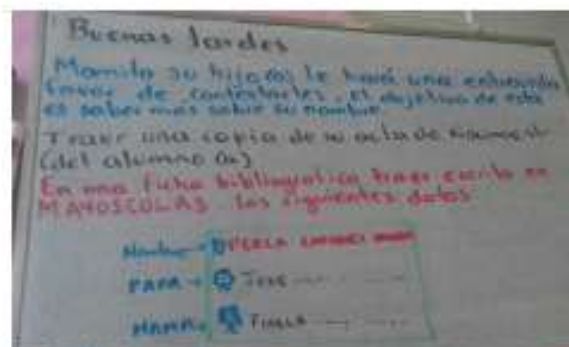 Buenas tardes
Mamita su hijo(a) le hará una entrevista
favor de contestarles, el objetivo de esta
es saber más sobre su nombre
Traer una copia de su acta de
(del alumno (a)
En una ficha bibliografica traer escrito en
MAYUSCOLAS los siguientes datos
Nombre
PAPA
MAMA